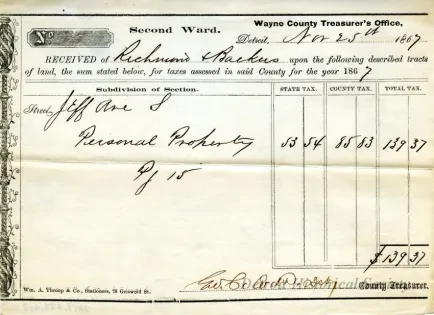 Wayne County Treasurer's Office,
No
Second Ward.
Detroit, Nov 25th 1867
RECEIVED of Richmond & Backus upon the following described tracts
of land, the sum stated below, for taxes assessed in said County for the year 1867
Subdivision of Section. STATE TAX. COUNTY TAX. TOTAL TAX.
Street, Jeff Ave S
Personal Property 53 54 85 83 139 37
Pg 15
$139 37
Wm. A. Throop & Co., Stationers, 75 Griswold St.
Detroit Historical Society
County Treasurer.